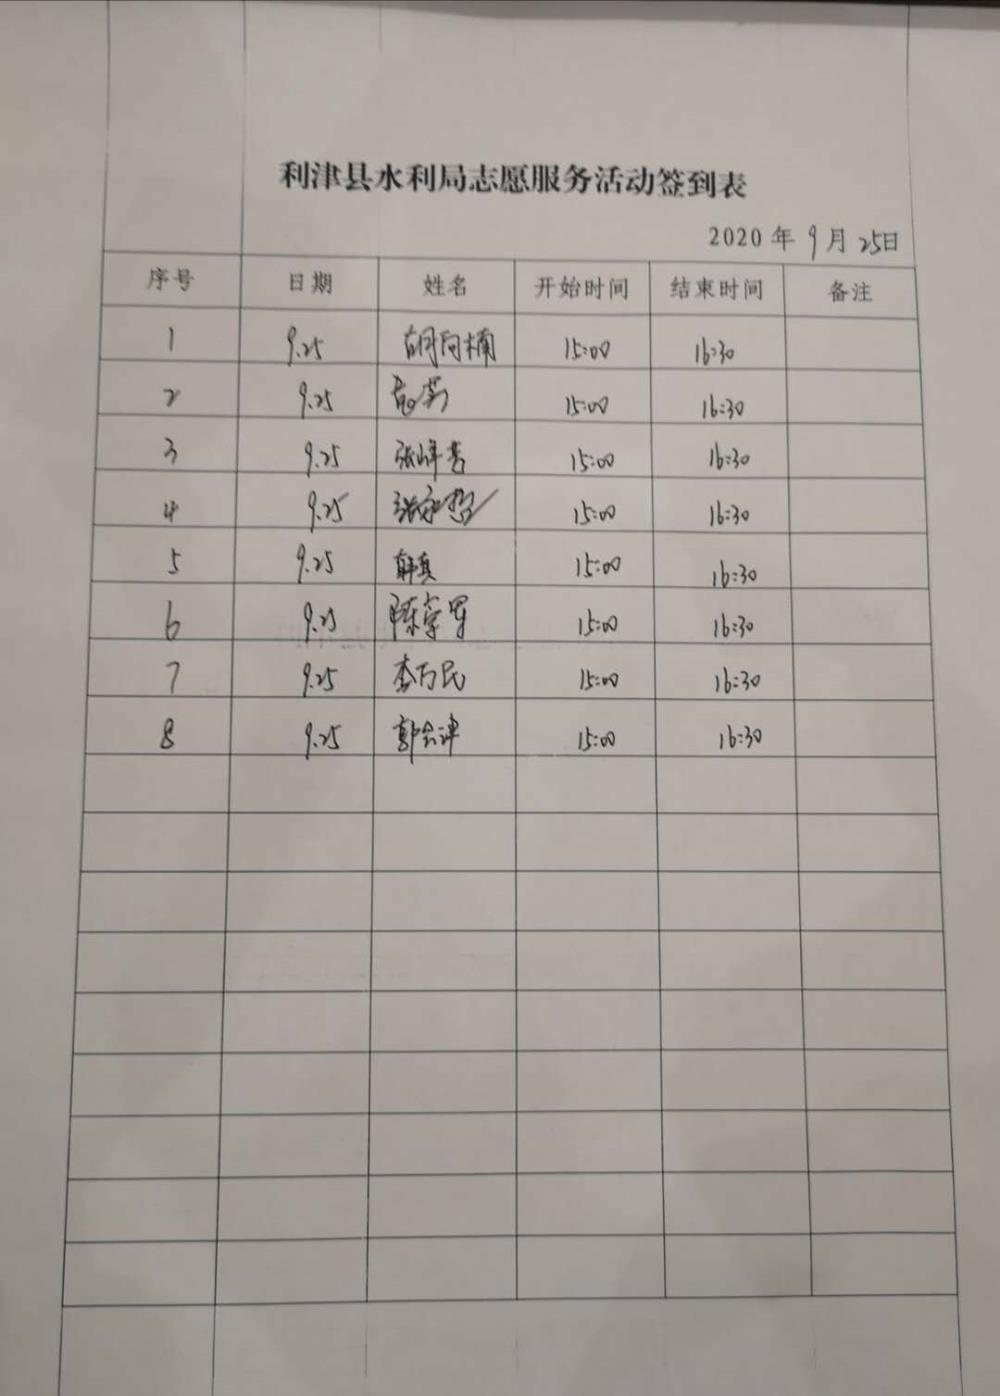 利津县水利局志愿服务活动签到表
2020 年 9 月 25日
序号 日期 姓名 开始时间 结束时间 备注
1 9.25 胡向楠 15:00 16:30
2 9.25 15:00 16:30
3 9.25 张峰 15:00 16:30
4 9.25 张永哲 15:00 16:30
5 9.25 韩真 15:00 16:30
6 9.25 陈军 15:00 16:30
7 9.25 李万民 15:00 16:30
8 9.25 郭会津 15:00 16:30